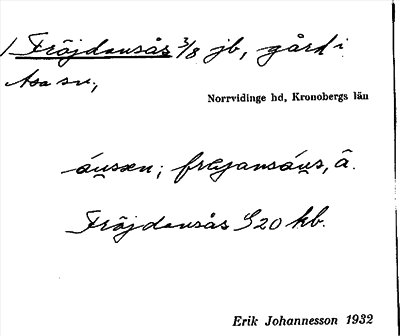 Fröjdansås 3/8 jb, gård i
Asa sn,
Norrvidinge hd, Kronobergs län
Fröjdansås 920 kb.
Erik Johannesson 1932